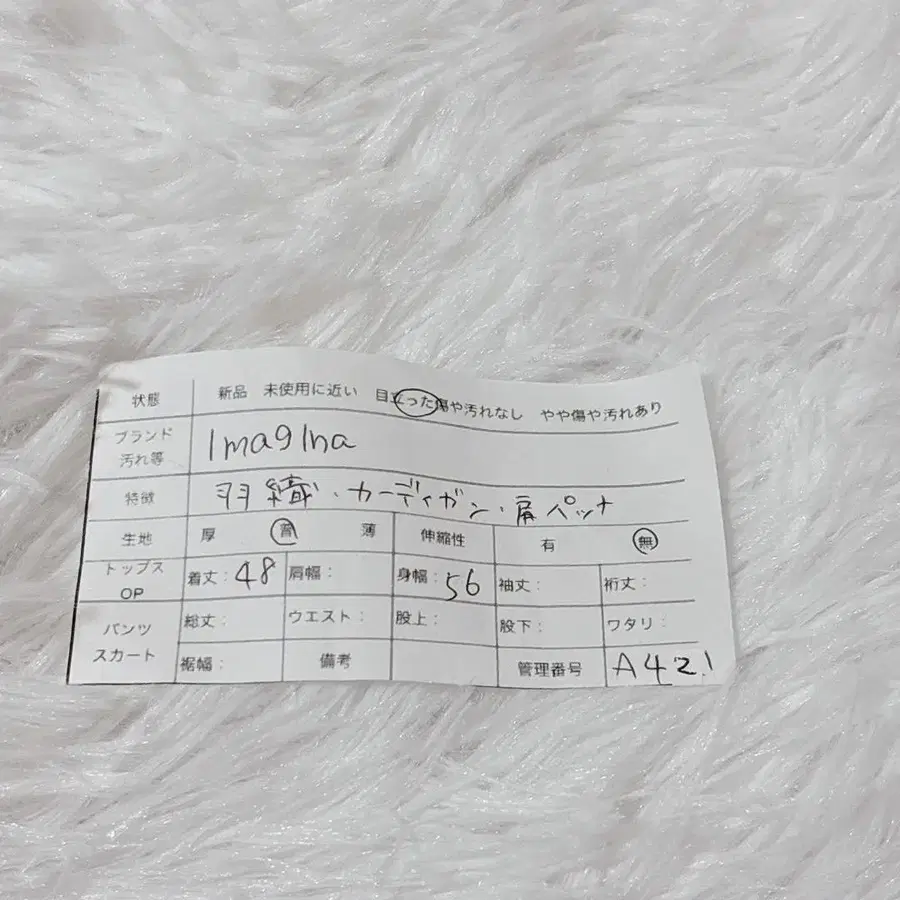 状態 新品 未使用に近い 目立った傷や汚れなし やや傷や汚れあり
ブランド
汚れ等 Imagina
特徴 羽織・カーディガン・肩パット
生地 厚 普 薄 伸縮性 有 無
トップス
OP 着丈:48 肩幅: 身幅:56 袖丈: 裄丈:
パンツ
スカート 総丈: ウエスト: 股上: 股下: ワタリ:
裾幅: 備考 管理番号 A421